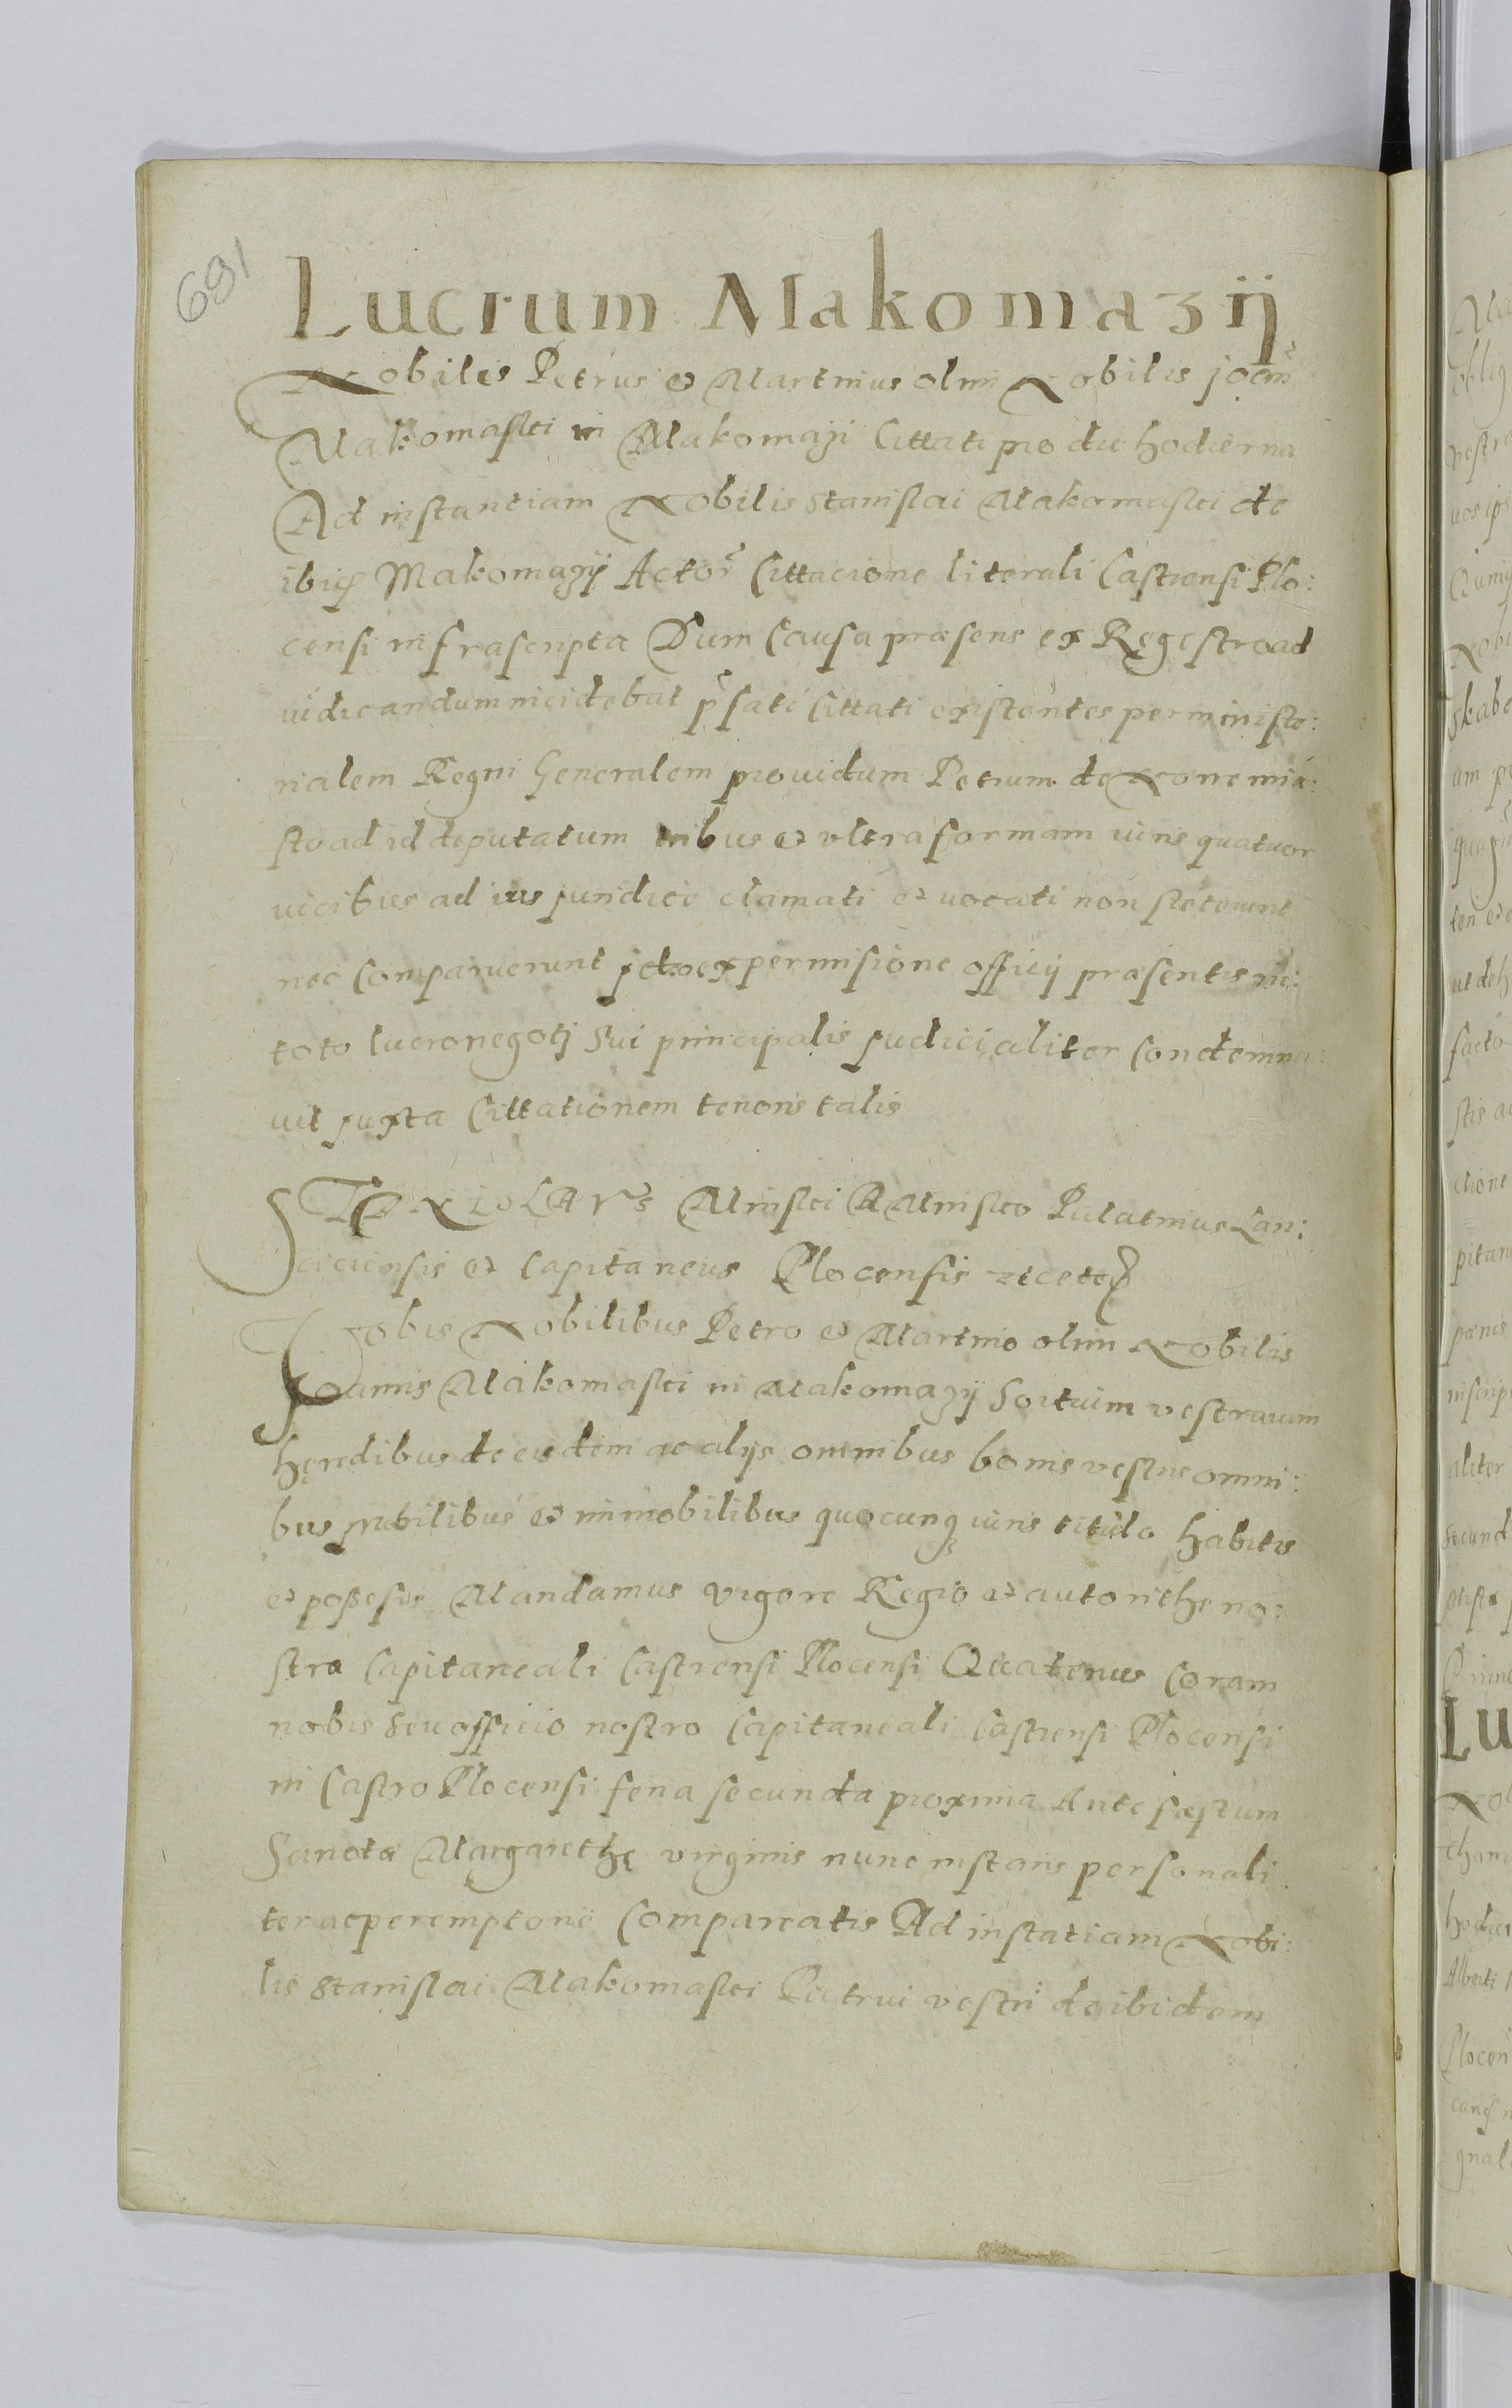 691
Lucrum Makomazÿ
Nobiles Petrus et Martinus olim Nobilis Joan̄
Makomaski in Makomazi Cittati pro die hodierna
Ad instantiam Nobilis Stanislai Makomaski de
ibiq Makomazÿ Actor Cittacione literali Castrensi Plo:
censi infrascripta Dum Causa præsens ex Regestro ad
iudicandum incidebat pfati Cittati existentes per ministe:
rialem Regni Generalem providum Petrum de Nonemia:
sto ad id deputatum tribus et ultra formam iuris quatuor
vicibus ad ius juridice clamati et vocati non steterunt
nec Comparuerunt ex permisione officij præsentis in:
toto lucro negotj Sui principalis judicialiter Condemna:
vit juxta Cittationem tenoris talis
STENZLAVS Minski A Minsko Palatinus Lan:
ciciensis et Capitaneus Plocensis
Vobis Nobilibus Petro et Martino olim Nobilis
Joannis Makomaski in Makomazÿ Sortium vestrarum
hęredibus de eisdem ac alÿs omnibus bonis vestris omni:
bus mobilibus et immobilibus quocunq iuris titulo habitis
et possesis Mandamus vigore Regio et autorithe no:
stra Capitaneali Castrensi Plocensi Quatenus Coram
nobis Seu officio nostro Capitaneali Castrensi Plocensi
in Castro Plocensi feria secunda proxima Ante fæstum
Sanctæ Margarethę virginis nunc instans personali
ter ac peremptorie Compareatis Ad instatiam Nobi:
lis Stanislai Makomaski Patrui vestri de ibidem